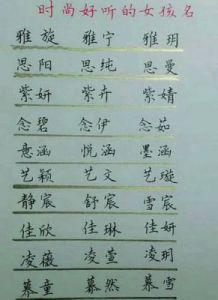 时尚好听的女孩名
雅旋 雅宁 雅玥
思阳 思纯 思曼
紫妍 紫卉 紫婧
念碧 念伊 念茹
意涵 悦涵 墨涵
艺颖 艺文 艺璇
静宸 舒宸 雪宸
佳欣 佳琳 佳妍
凌薇 凌萱 凌玥
慕童 慕然 慕雪